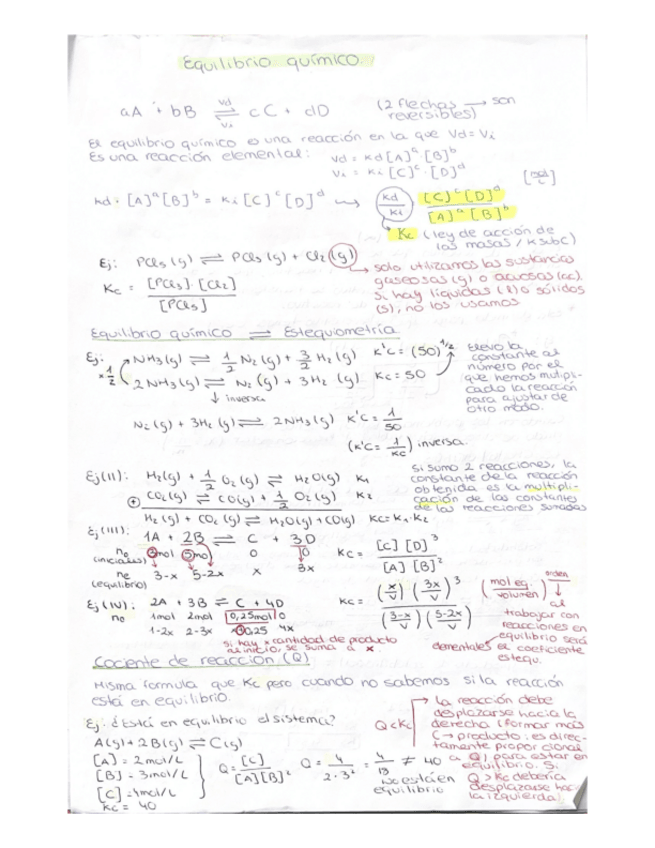 Equilibrio químico.
aA + bB ⇌ cC + dD (2 flechas → son reversibles)
Vd
Vi
El equilibrio químico es una reacción en la que Vd = Vi
Es una reacción elemental: Vd = Kd [A]^a [B]^b
Vi = Ki [C]^c [D]^d
[mol/L]
Kd · [A]^a [B]^b = Ki [C]^c [D]^d ⟿ Kd/Ki [C]^c [D]^d / [A]^a [B]^b
Kc (ley de acción de
las masas / K sub C)
Ej: PCl5 (g) ⇌ PCl3 (g) + Cl2 (g)
→ solo utilizamos las sustancias
gaseosas (g) o acuosas (ac).
Si hay líquidas (l) o sólidos
(s), no los usamos
Kc = [PCl3] · [Cl2] / [PCl5]
Equilibrio químico ⇌ Estequiometría
Ej: NH3 (g) ⇌ 1/2 N2 (g) + 3/2 H2 (g) K'c = (50)^1/2
× 1/2
2NH3 (g) ⇌ N2 (g) + 3H2 (g) Kc = 50
Elevo la
constante al
número por el
que hemos multipli-
cado la reacción
para ajustar de
otro modo.
↓ inversa
N2 (g) + 3H2 (g) ⇌ 2NH3 (g) K'c = 1/50
(K'c = 1/Kc) inversa.
Ej (II): H2 (g) + 1/2 O2 (g) ⇌ H2O (g) K1
⊕ CO2 (g) ⇌ CO (g) + 1/2 O2 (g) K2
H2 (g) + CO2 (g) ⇌ H2O (g) + CO (g) Kc = K1 · K2
Si sumo 2 reacciones, la
constante de la reacción
obtenida es la multipli-
cación de las constantes
de las reacciones sumadas
Ej (III): 1A + 2B ⇌ C + 3D
no (iniciales) 3mol 5mol 0 0
ne (equilibrio) 3-x 5-2x x 3x
Kc = [C] [D]^3 / [A] [B]^2
Kc = (x/V) (3x/V)^3 / (3-x/V) (5-2x/V)
(mol eq. / volumen)
orden
al
trabajar con
reacciones en
equilibrio será
elementales el coeficiente
estequ.
Ej (IV): 2A + 3B ⇌ C + 4D
no 1mol 2mol 0,25mol 0
1-2x 2-3x x+0,25 4x
Si hay × cantidad de producto
al inicio, se suma a x.
Cociente de reacción (Q)
Misma formula que Kc pero cuando no sabemos si la reacción
está en equilibrio.
Ej: ¿Está en equilibrio el sistema?
A (g) + 2B (g) ⇌ C (g)
[A] = 2mol/L
[B] = 3mol/L
[C] = 4mol/L
Kc = 40
Q = [C] / [A][B]^2 Q = 4 / 2·3^2 = 4/18 ≠ 40
No está en
equilibrio
Q < Kc
La reacción debe
desplazarse hacia la
derecha (formar más
C → producto: es direc-
tamente proporcional
a Q) para estar en
equilibrio. Si
Q > Kc debería
desplazarse hac-
ia izquierda).